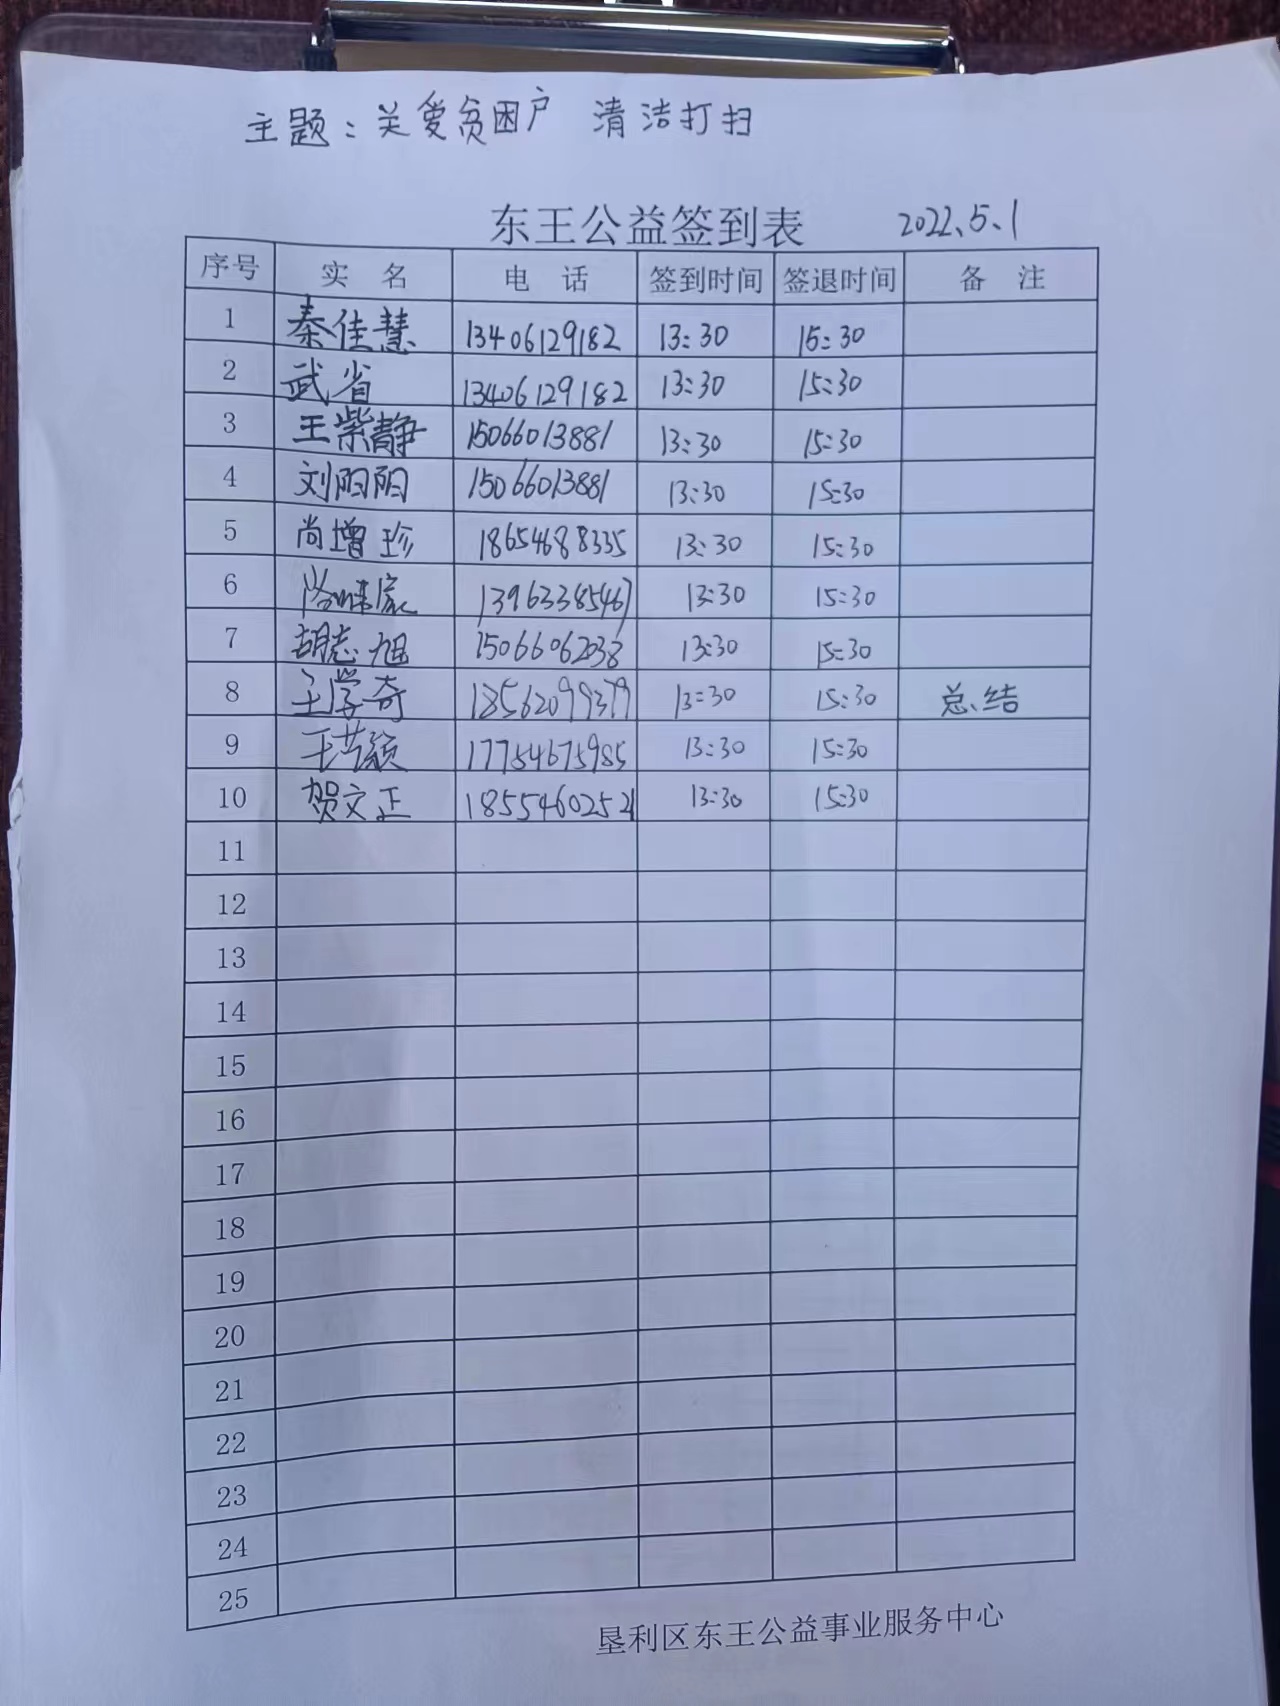 主题：关爱贫困户 清洁打扫
东王公益签到表 2022.5.1
序号 实名 电话 签到时间 签退时间 备注
1 秦佳慧 13406129182 13:30 15:30
2 武省 13406129182 13:30 15:30
3 王紫静 15066013881 13:30 15:30
4 刘阳阳 15066013881 13:30 15:30
5 尚增珍 18654688335 13:30 15:30
6 13963385467 13:30 15:30
7 胡志旭 15066062038 13:30 15:30
8 王学奇 18562099379 13:30 15:30 总结
9 王艺颖 17754675985 13:30 15:30
10 贺文正 18554602521 13:30 15:30
11
12
13
14
15
16
17
18
19
20
21
22
23
24
25
垦利区东王公益事业服务中心